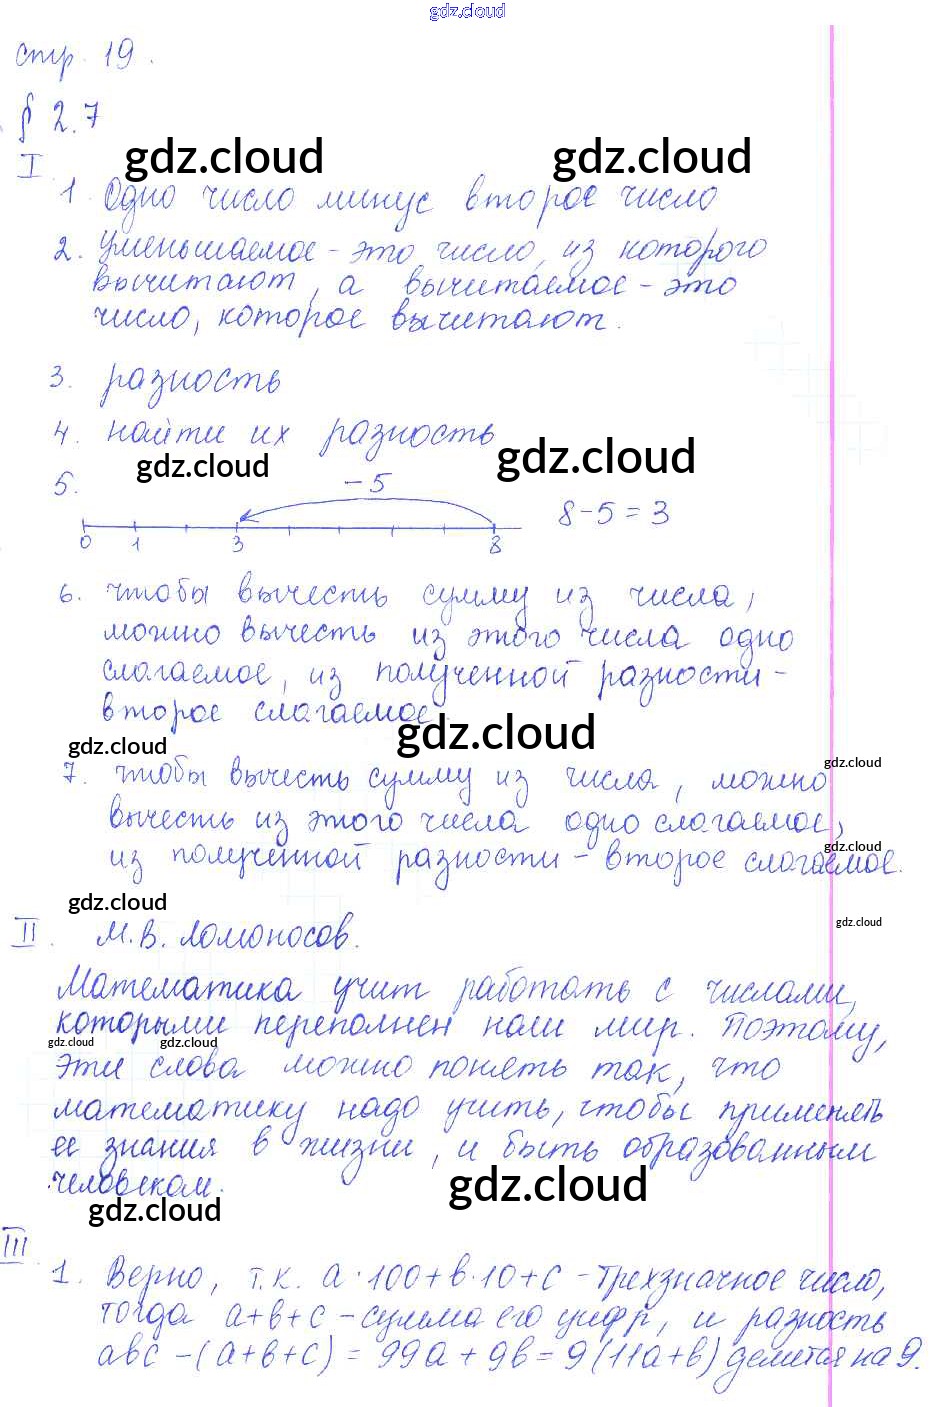 gdz.cloud
стр. 19.
§ 2.7
gdz.cloud gdz.cloud
I
1. Одно число минус второе число
2. Уменьшаемое - это число, из которого
вычитают, а вычитаемое - это
число, которое вычитают.
3. разность
4. найти их разность
gdz.cloud gdz.cloud
5. -5
8-5=3
0 1 3 8
6. чтобы вычесть сумму из числа,
можно вычесть из этого числа одно
слагаемое, из полученной разности -
второе слагаемое.
gdz.cloud gdz.cloud gdz.cloud
7. чтобы вычесть сумму из числа, можно
вычесть из этого числа одно слагаемое,
из полученной разности - второе слагаемое.
gdz.cloud
gdz.cloud gdz.cloud
II. М.В. Ломоносов.
Математика учит работать с числами,
которыми переполнен наш мир. Поэтому,
gdz.cloud gdz.cloud
эти слова можно понять так, что
математику надо учить, чтобы применять
ее знания в жизни, и быть образованным
человеком.
gdz.cloud gdz.cloud
III
1. Верно, т.к. a·100+b·10+c - трехзначное число,
тогда a+b+c - сумма его цифр, и разность
abc - (a+b+c) = 99a + 9b = 9(11a+b) делится на 9.